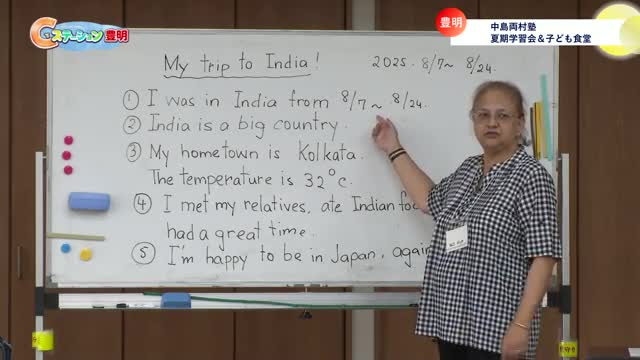 Gステーション 豊明
豊明
中島両村塾
夏期学習会&子ども食堂
My trip to India!
2025. 8/7~ 8/24.
① I was in India from 8/7~ 8/24.
② India is a big country.
③ My hometown is Kolkata.
The temperature is 32°c.
④ I met my relatives, ate Indian foo
had a great time.
⑤ I'm happy to be in Japan, again